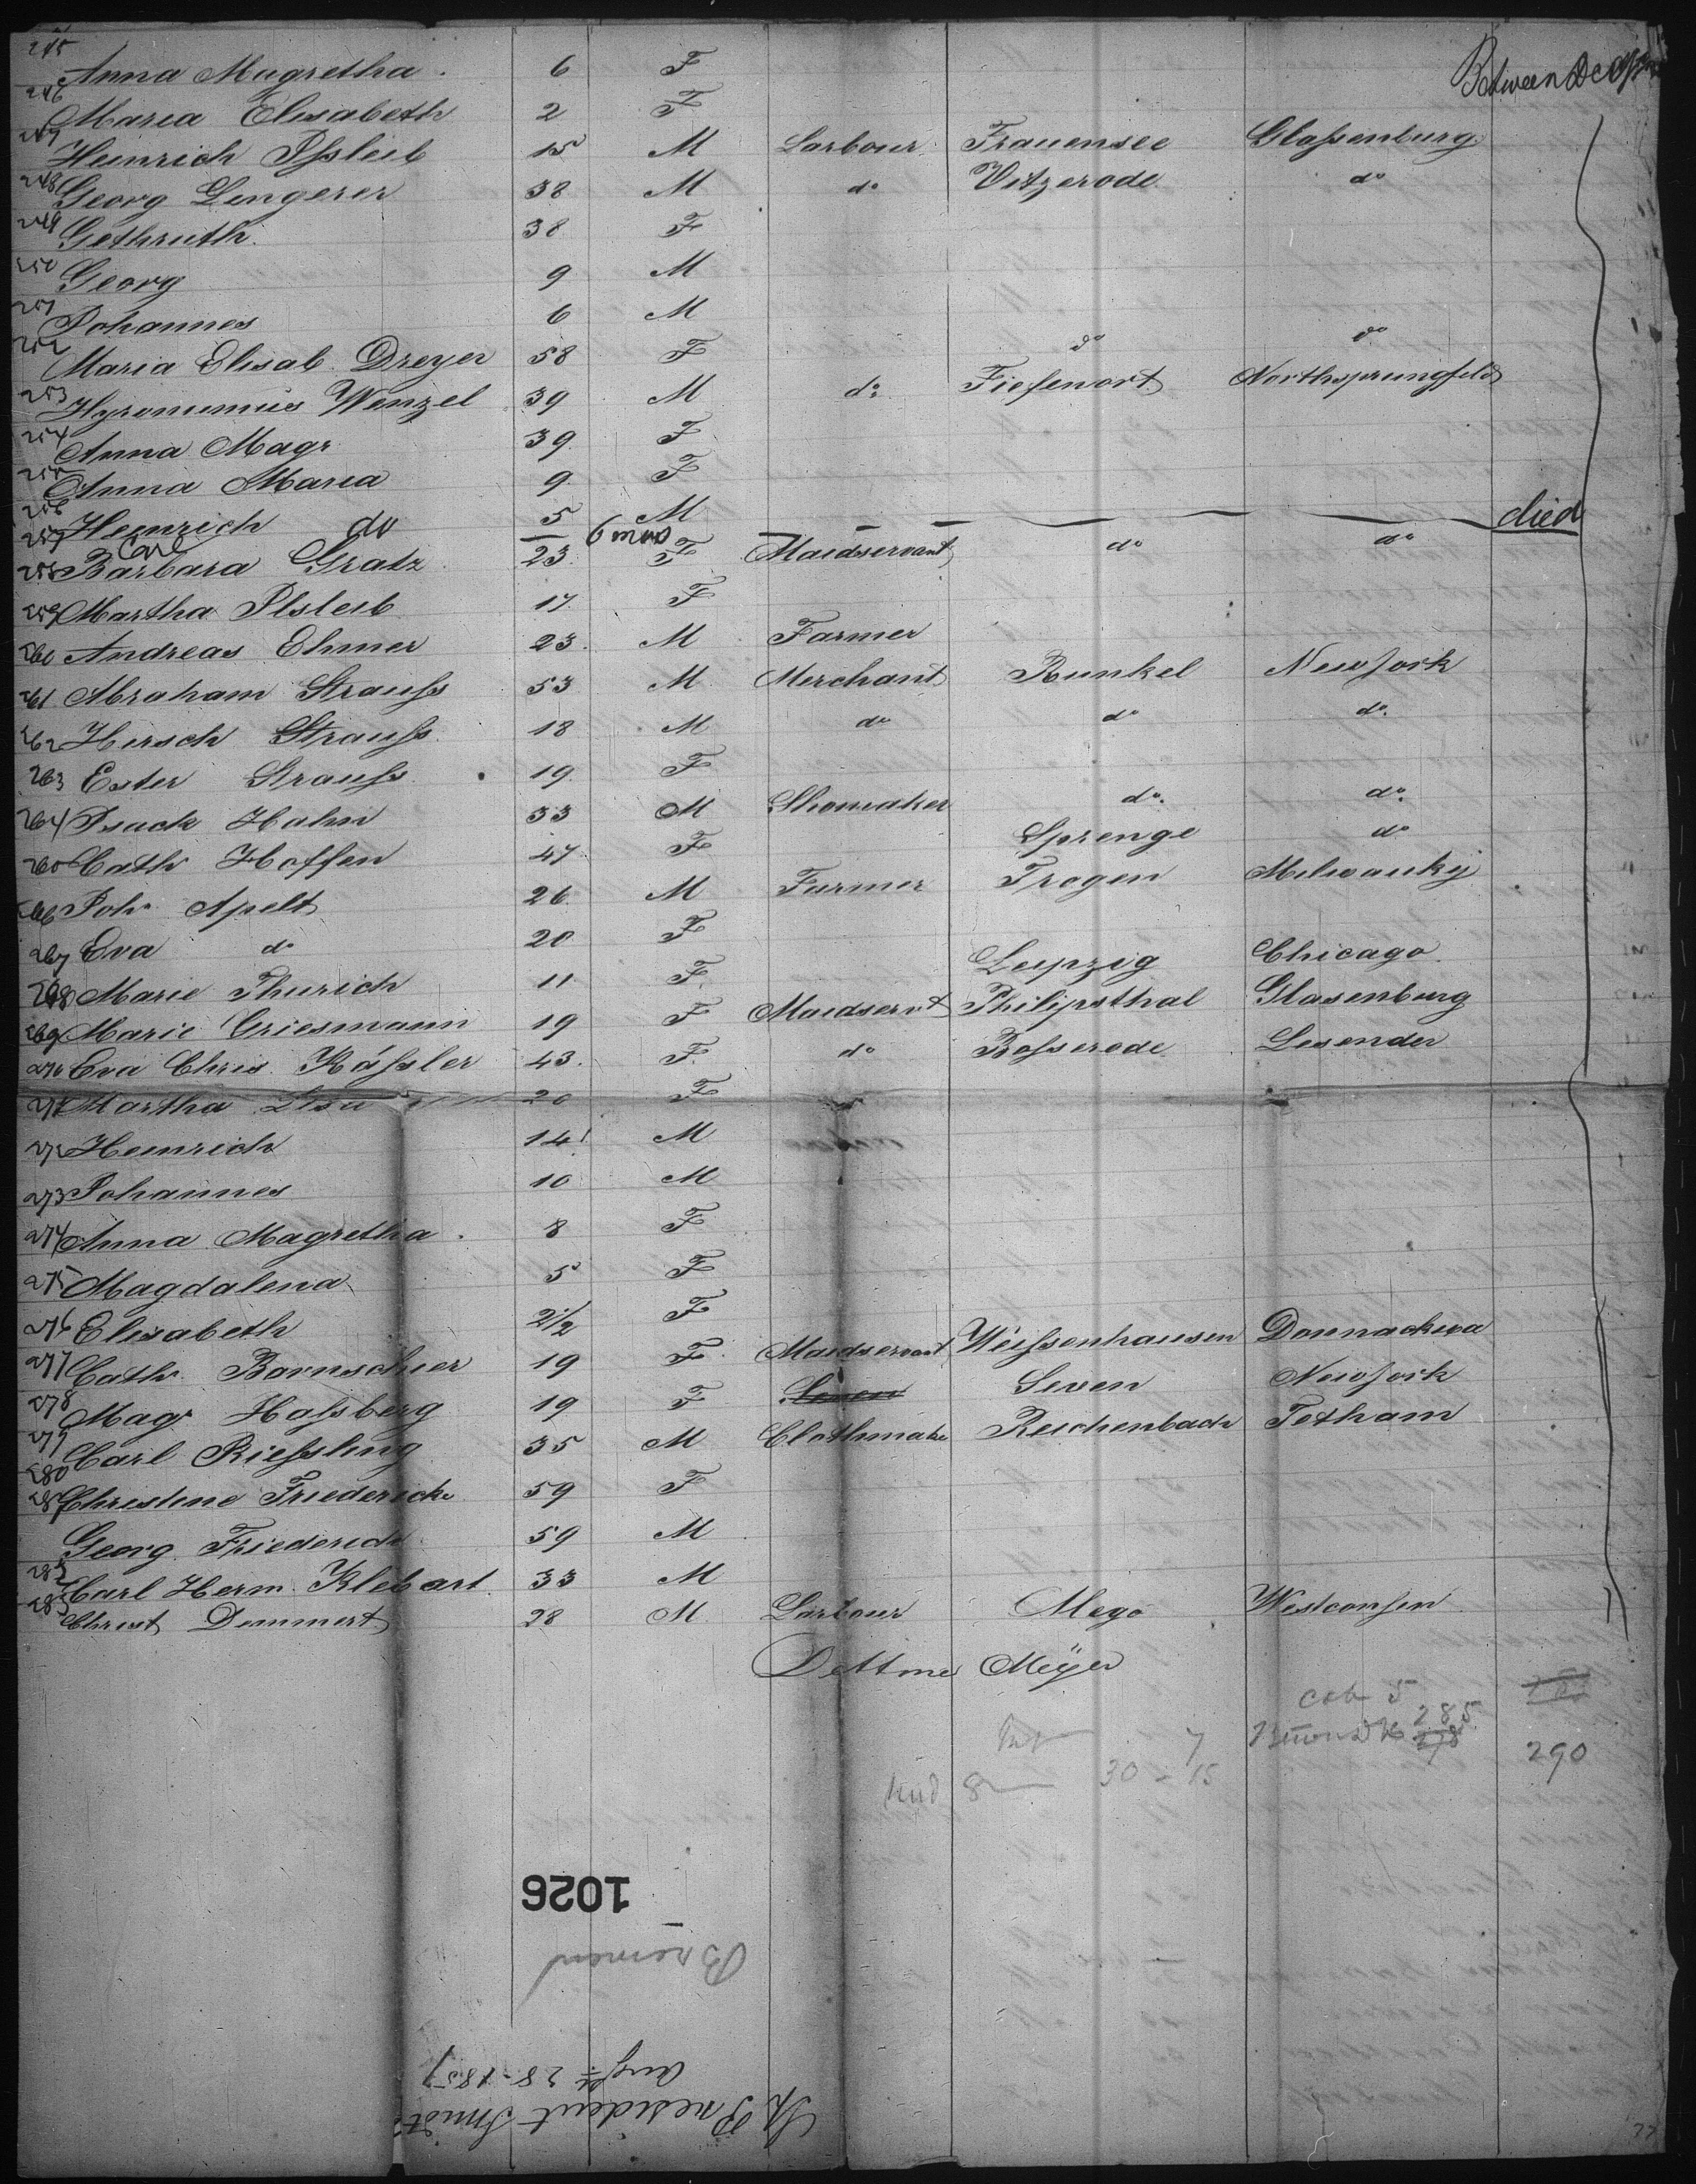 Between Decks
245 Anna Magretha. 6 F
246 Maria Elisabeth 2 F
247 Heinrich Ißleib 15 M Larbour Frauensee Glaßenburg
248 Georg Lengerer 38 M do Vitzerode do
249 Gethruth. 38 F
250 Georg 9 M
251 Johannes 6 M
252 Maria Elisab. Dreyer 58 F do do
253 Hyronumus Wenzel 39 M do. Tiefenort Northsprungfeld
254 Anna Magr 39 F
255 Anna Maria 9 F
256 Heinrich 5 M
257 Carl do 6 mos died
258 Barbara Gratz 23 F Maidservant do do
259 Martha Ißleib 17 F
260 Andreas Ehmer 23. M Farmer
261 Abraham Strauß 53 M Merchant Runkel New Jork
262 Hirsch Strauß 18 M do do do.
263 Ester Strauß 19 F
264 Isack Hahn 33 M Shomaker do. do.
265 Cath Hoffen 47 F Sprenge do
266 Joh. Apelt 26 M Farmer Trogen Milwauky
267 Eva do 20 F
268 Marie Thurich 11 F Leipzig Chicago.
269 Marie Griesmann 19 F Maidservt Philipsthal Glasenburg
270 Eva Chris. Käßler 43. F do Boßerode Lesender
271 Martha 20 F
272 Heinrich 14 M
273 Johannes 10 M
274 Anna Magretha. 8 F
275 Magdalena 5 F
276 Elisabeth 2 1/2 F
277 Cath. Bornschier 19 F Maidservant Weissenhausen Donnackwa
278 Mag. Haßberg 19 F Seven New Jork
279 Carl Rießling 35 M Clothmake Reichenbach Tetham
280 Christine Friedericke 59 F
281 Georg Friederich 59 M
282 Carl Herm. Klebart. 33 M
283 Christ Demmert 28 M Larbour Mego Westconsin
Dettme Meÿer
cab 5
285
7
290
30 - 15
8
1026
Bremen
Augst 28-1857
Sh President Smidt